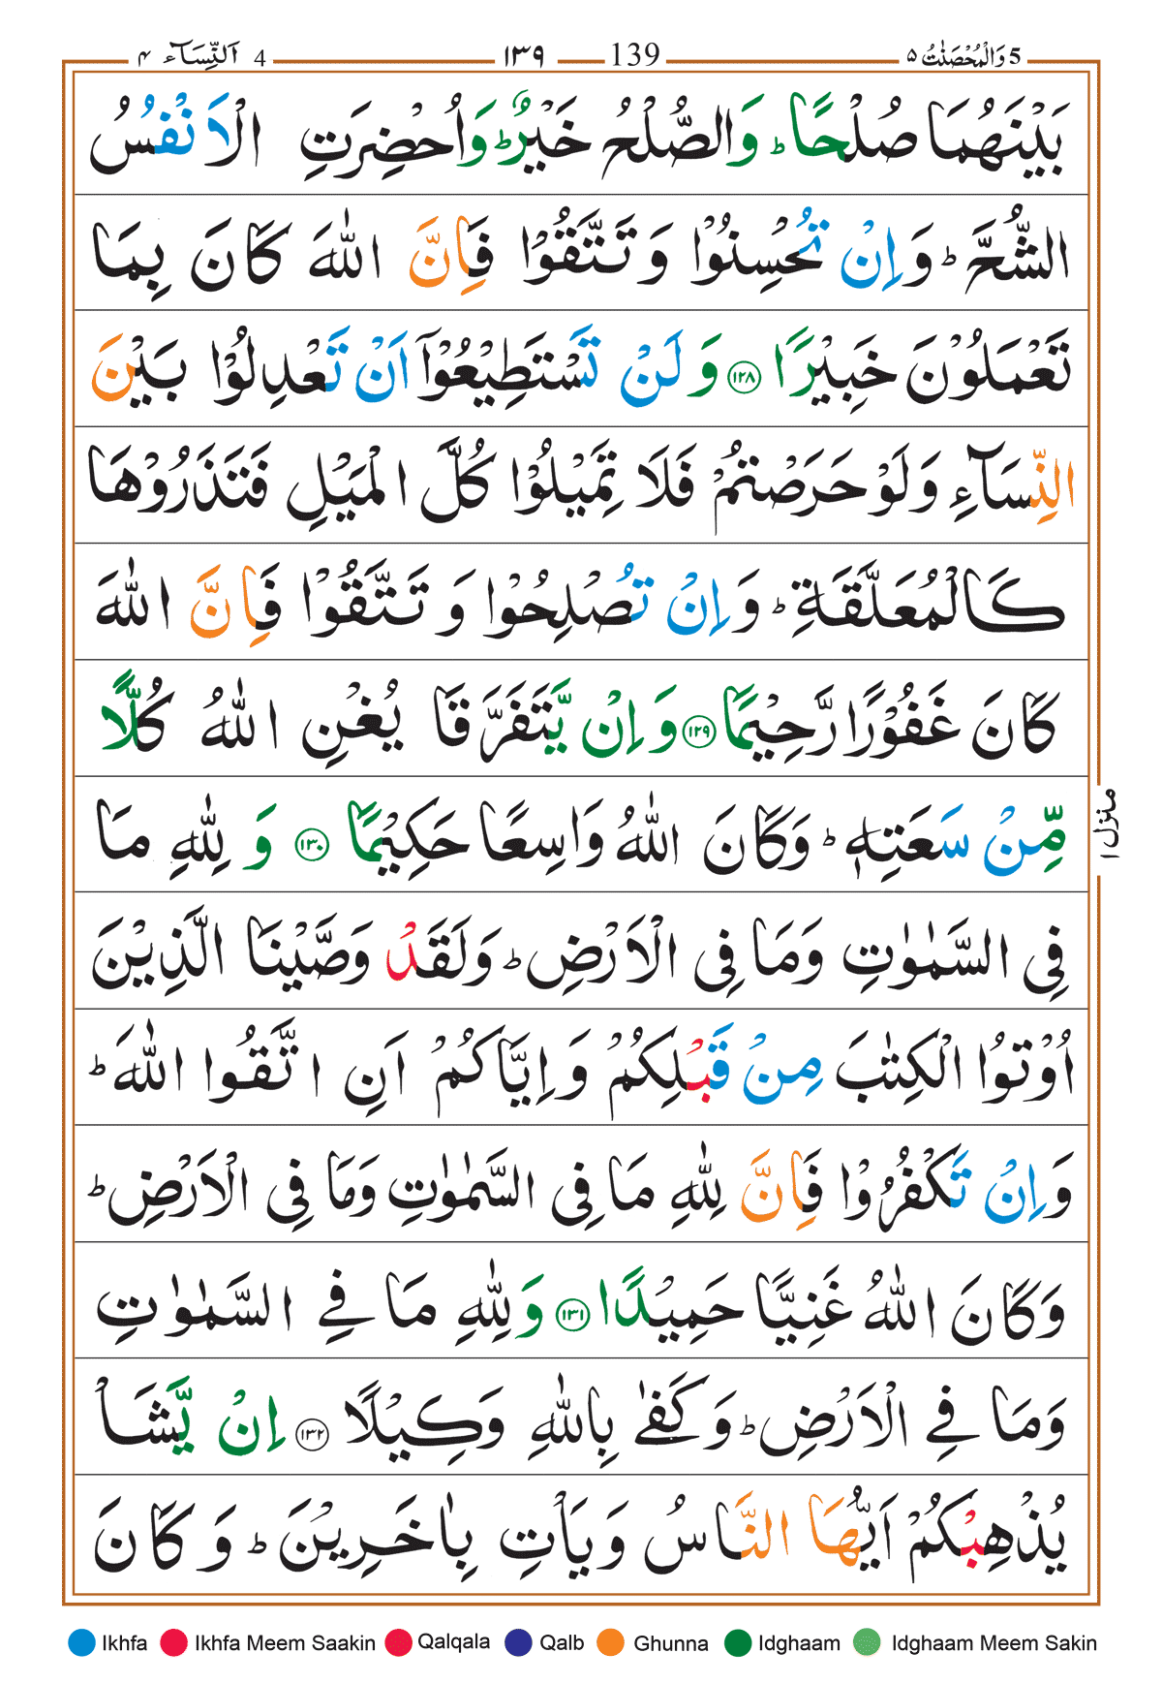 4 اَلنِّسَآء ٤ 139 ١٣٩ 5 وَالْمُحْصَنٰتُ ٥
بَيْنَهُمَا صُلْحًا ؕ وَالصُّلْحُ خَيْرٌ ؕ وَاُحْضِرَتِ الْاَنْفُسُ
الشُّحَّ ؕ وَاِنْ تُحْسِنُوْا وَتَتَّقُوْا فَاِنَّ اللّٰهَ كَانَ بِمَا
تَعْمَلُوْنَ خَبِيْرًا ۝١٢٨ وَلَنْ تَسْتَطِيْعُوْۤا اَنْ تَعْدِلُوْا بَيْنَ
النِّسَآءِ وَلَوْ حَرَصْتُمْ فَلَا تَمِيْلُوْا كُلَّ الْمَيْلِ فَتَذَرُوْهَا
كَالْمُعَلَّقَةِ ؕ وَاِنْ تُصْلِحُوْا وَتَتَّقُوْا فَاِنَّ اللّٰهَ
كَانَ غَفُوْرًا رَّحِيْمًا ۝١٢٩ وَاِنْ يَّتَفَرَّقَا يُغْنِ اللّٰهُ كُلًّا
مِّنْ سَعَتِهٖ ؕ وَكَانَ اللّٰهُ وَاسِعًا حَكِيْمًا ۝١٣٠ وَلِلّٰهِ مَا
فِى السَّمٰوٰتِ وَمَا فِى الْاَرْضِ ؕ وَلَقَدْ وَصَّيْنَا الَّذِيْنَ
اُوْتُوا الْكِتٰبَ مِنْ قَبْلِكُمْ وَاِيَّاكُمْ اَنِ اتَّقُوا اللّٰهَ ؕ
وَاِنْ تَكْفُرُوْا فَاِنَّ لِلّٰهِ مَا فِى السَّمٰوٰتِ وَمَا فِى الْاَرْضِ ؕ
وَكَانَ اللّٰهُ غَنِيًّا حَمِيْدًا ۝١٣١ وَلِلّٰهِ مَا فِے السَّمٰوٰتِ
وَمَا فِے الْاَرْضِ ؕ وَكَفٰے بِاللّٰهِ وَكِيْلًا ۝١٣٢ اِنْ يَّشَاْ
يُذْهِبْكُمْ اَيُّهَا النَّاسُ وَيَاْتِ بِاٰخَرِيْنَ ؕ وَكَانَ
منزل ١
Ikhfa Ikhfa Meem Saakin Qalqala Qalb Ghunna Idghaam Idghaam Meem Sakin